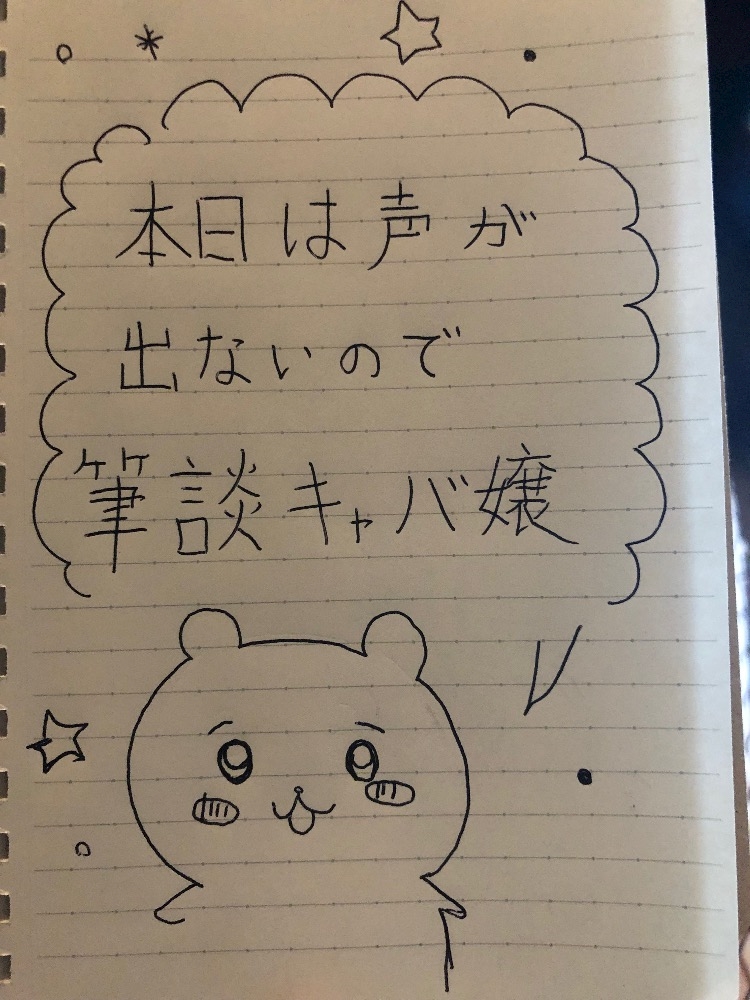 本日は声が
出ないので
筆談キャバ嬢